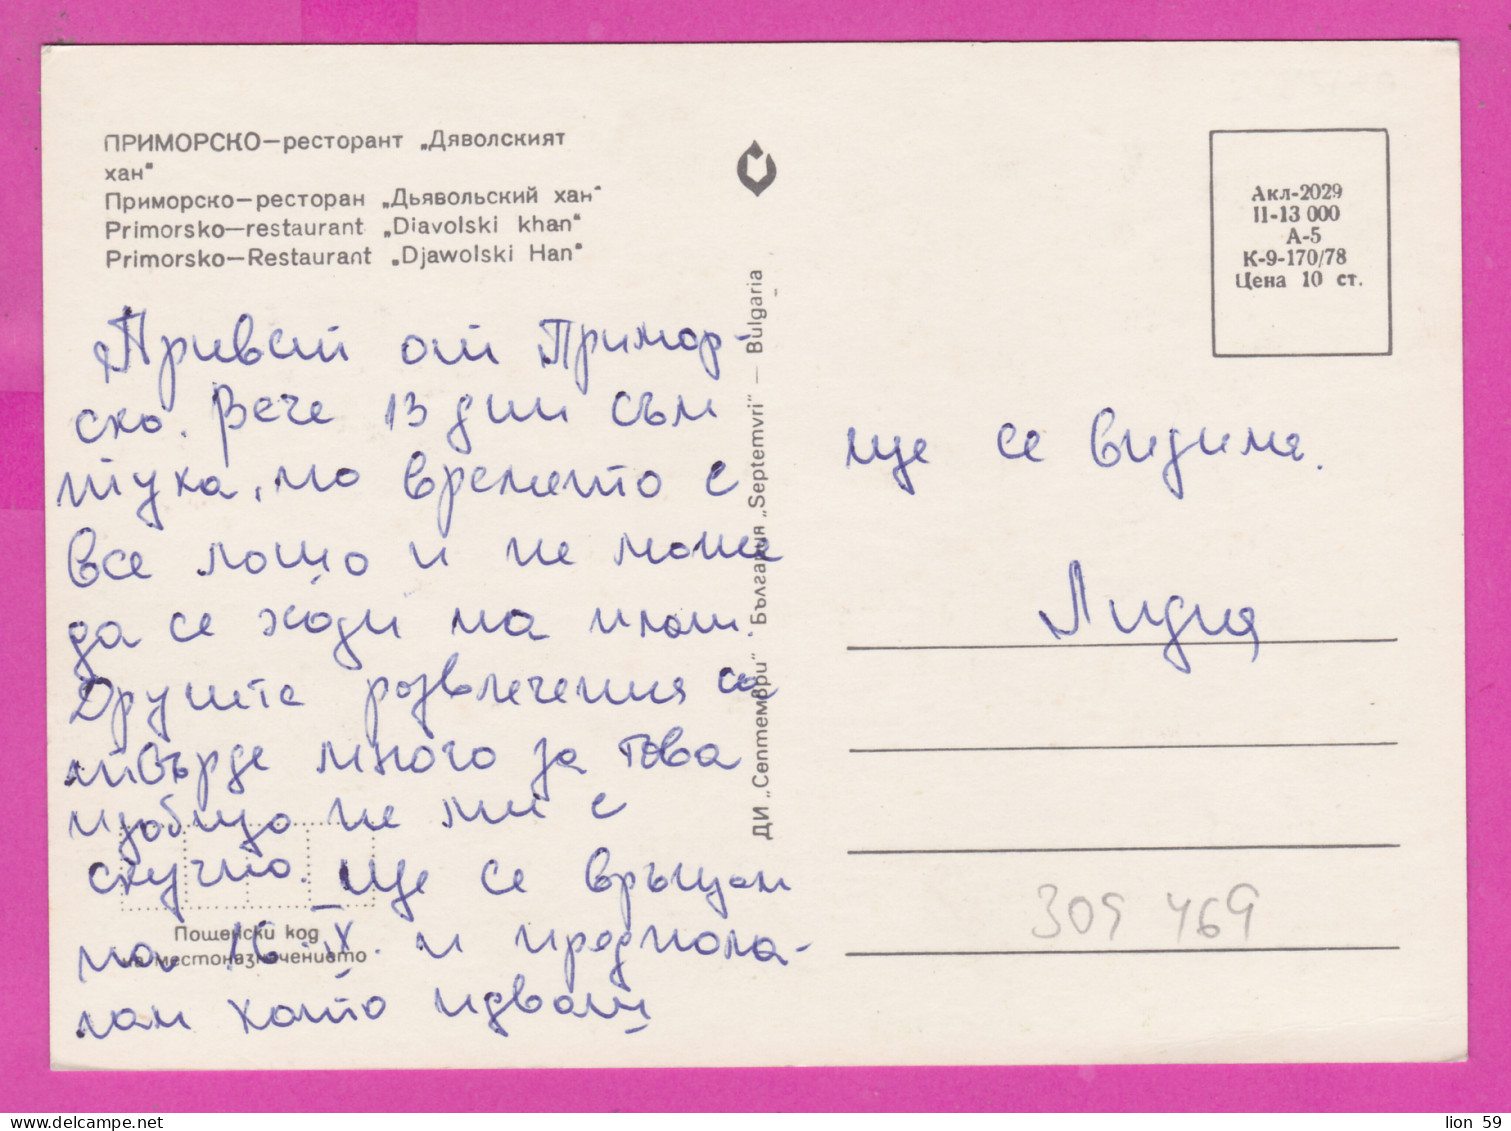 ПРИМОРСКО—ресторант „Дяволският
хан"
Приморско—ресторан „Дьявольский хан"
Primorsko—restaurant „Diavolski khan"
Primorsko—Restaurant „Djawolski Han"
Привет от Примор-
ско. Вече 13 дни съм
тука, но времето е
все лошо и не може
да се ходи на плаж.
Другите развлечения са
твърде много за това
изобщо не ми е
скучно. Ще се връщам
на 16. IX. и предпола-
гам като идваш
Пощенски код
на местоназначението
ДИ „Септември" · България „Septemvri" — Bulgaria
Акл-2029
II-13 000
А-5
К-9-170/78
Цена 10 ст.
ще се видиме.
Лидия
309 469
lion 59